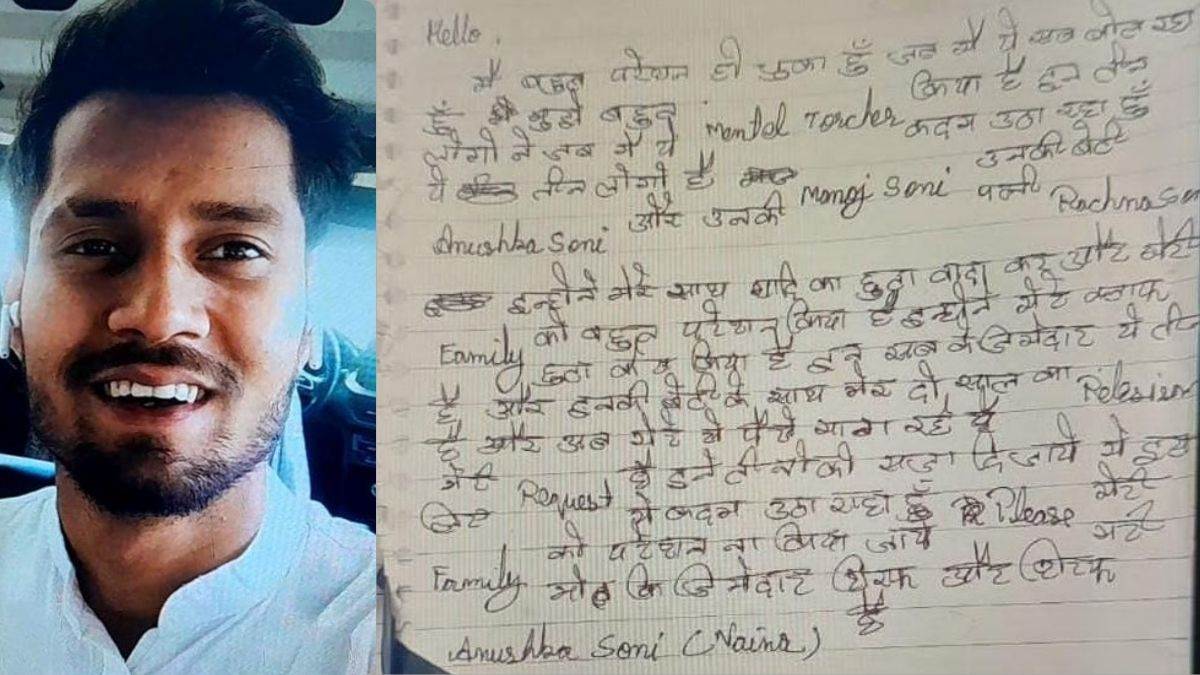 Hello,
मै बहुत परेशान हो चुका हूँ जब मै ये सब बोल रहा
हूँ मुझे बहुत mental Torcher किया है इन तीन
लोगो ने जब मै ये कदम उठा रहा हूँ
ये तीन लोगो है Manoj Soni उनकी बेटी
Anushka Soni और उनकी पत्नी Rachna Son
इन्होने मेरे साथ शादि का झुठा वादा कर और मेरी
Family को बहुत परेशान किया है इन्होने मेरे क्लाफ
झुठा केस किया है इन सब के जिमेदार ये तीन
है और इनकी बेटी के साथ मेरा दो साल का Relesion
है और अब मेरे से पैसे माग रहे है
मेरी Request है इने तीनो की सजा दिजाये मे इस
लिए ये कदम उठा राहा हूँ Please मेरी
Family को परेशान ना किया जाये मेरी
मोत कि जिमेदार शिरफ और शिरफ
Anushka Soni (Naina) है